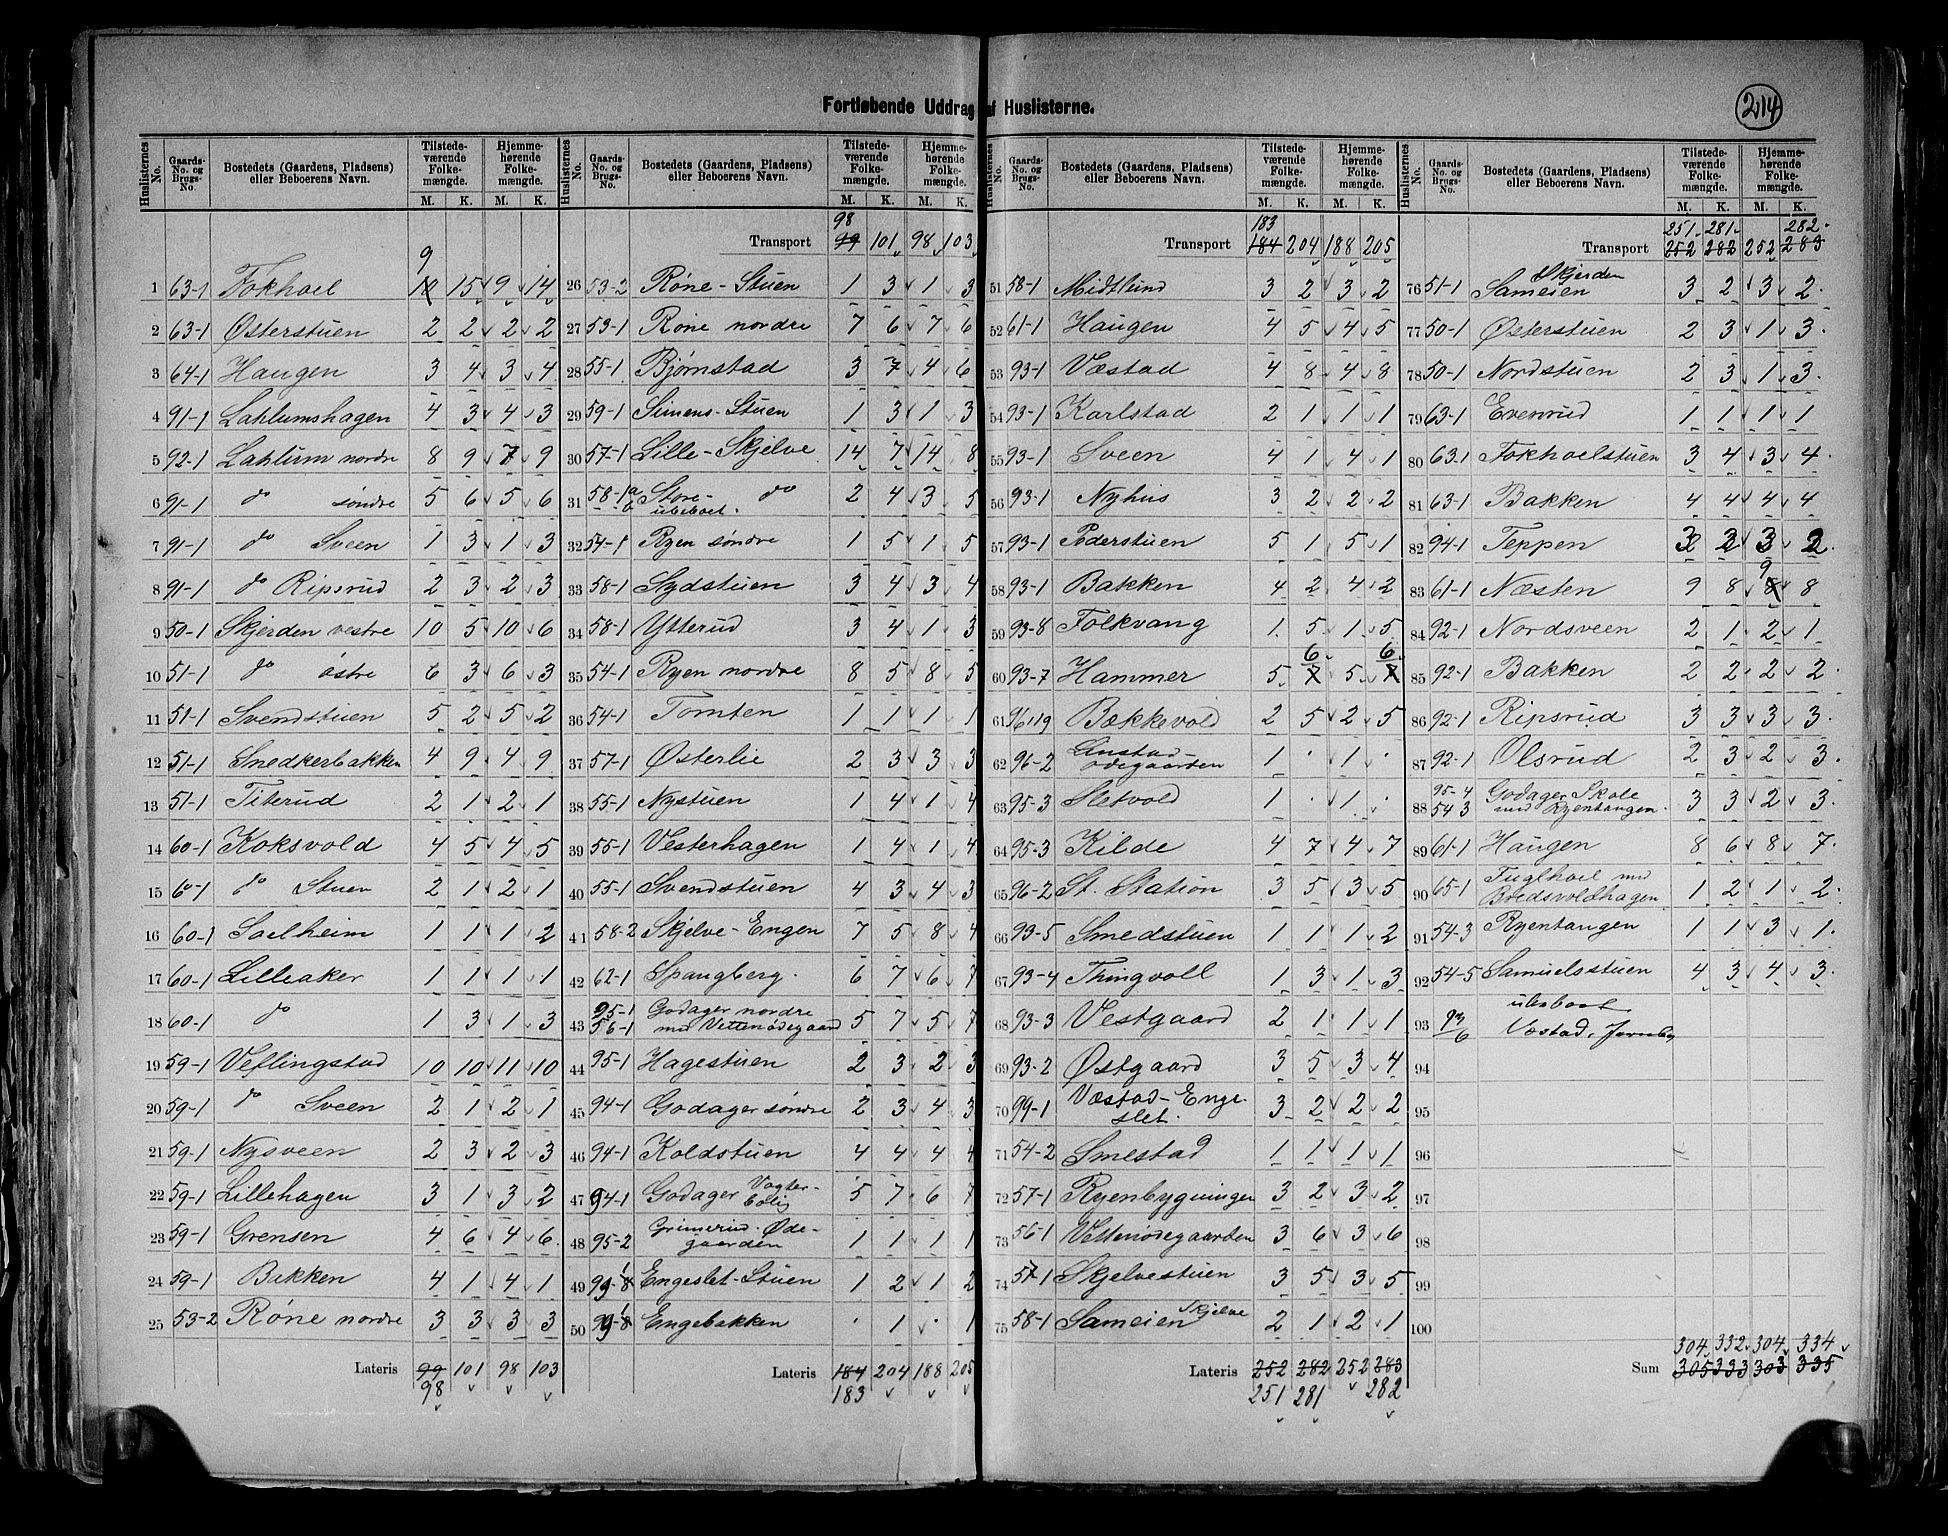 Fortløbende Uddrag af Huslisterne.
214
Huslisternes No. Gaards-No. og Brugs-No. Bostedets (Gaardens, Pladsens) eller Beboerens Navn. Tilstedeværende Folkemængde. M. K. Hjemmehørende Folkemængde. M. K.
9
1 63-1 Fokhoel 10 15 9 14
2 63-1 Østerstuen 2 2 2 2
3 64-1 Haugen 3 4 3 4
4 91-1 Lahlumshagen 4 3 4 3
5 92-1 Lahlum nordre 8 9 7 9
6 91-1 do søndre 5 6 5 6
7 91-1 do Sveen 1 3 1 3
8 91-1 do Ripsrud 2 3 2 3
9 50-1 Skjerden vestre 10 5 10 6
10 51-1 do østre 6 3 6 3
11 51-1 Svendstuen 5 2 5 2
12 51-1 Snedkerbakken 4 9 4 9
13 51-1 Titerud 2 1 2 1
14 60-1 Koksvold 4 5 4 5
15 60-1 do Stuen 2 1 2 1
16 60-1 Solheim 1 1 1 2
17 60-1 Lilleaker 1 1 1 1
18 60-1 do 1 3 1 3
19 59-1 Veflingstad 10 10 11 10
20 59-1 do Sveen 2 1 2 1
21 59-1 Nysveen 2 3 2 3
22 59-1 Lillehagen 3 1 3 2
23 59-1 Grensen 4 6 4 6
24 59-1 Bakken 4 1 4 1
25 53-2 Røne nordre 3 3 3 3
Lateris 99 101 98 103
98
Huslisternes No. Gaards-No. og Brugs-No. Bostedets (Gaardens, Pladsens) eller Beboerens Navn. Tilstedeværende Folkemængde. M. K. Hjemmehørende Folkemængde. M. K.
98
Transport 99 101 98 103
26 53-2 Røne-Stuen 1 3 1 3
27 53-1 Røne nordre 7 6 7 6
28 55-1 Bjørnstad 3 7 4 6
29 59-1 Simens-Stuen 1 3 1 3
30 57-1 Lille-Skjelve 14 7 14 8
31 58-1 Store- do 2 4 3 5
ubeboet.
32 54-1 Ryen søndre 1 5 1 5
33 58-1 Sydstuen 3 4 3 4
34 58-1 Ytterud 3 4 1 3
35 54-1 Ryen nordre 8 5 8 5
36 54-1 Tomten 1 1 1 1
37 57-1 Østerlie 2 3 3 3
38 55-1 Nystuen 1 4 1 4
39 55-1 Vesterhagen 1 4 1 4
40 55-1 Svendstuen 4 3 4 3
41 58-2 Skjelve-Engen 7 5 8 4
42 62-1 Spangberg. 6 7 6 7
95-1 Godager nordre
43 56-1 med Vettenødegaard 5 7 5 7
44 95-1 Hagestuen 2 3 2 3
45 94-1 Godager søndre 2 3 4 3
46 94-1 Koldstuen 4 4 4 4
47 94-1 Godager Vogterbolig 5 7 6 7
48 95-2 Grimerud-Ødegaarden 1 1 1 1
49 Engeslet-Stuen 1 2 1 2
50 Engebakken · 1 · 1
Lateris 184 204 188 205
183
Huslisternes No. Gaards-No. og Brugs-No. Bostedets (Gaardens, Pladsens) eller Beboerens Navn. Tilstedeværende Folkemængde. M. K. Hjemmehørende Folkemængde. M. K.
183
Transport 184 204 188 205
51 58-1 Midtlund 3 2 3 2
52 61-1 Haugen 4 5 4 5
53 93-1 Væstad 4 8 4 8
54 93-1 Karlstad 2 1 1 1
55 93-1 Sveen 4 1 4 1
56 93-1 Nyhus 3 2 2 2
57 93-1 Pederstuen 5 1 5 1
58 93-1 Bakken 4 2 4 2
59 93-8 Folkvang 1 5 1 5
6 6
60 93-7 Hammer 5 7 5 7
61 96,19 Bækkevold 2 5 2 5
62 96-2 Anstad-ødegaarden 1 · 1 ·
63 95-3 Sletvold 1 · 1 ·
64 95-3 Kilde 4 7 4 7
65 96-2 St. Station 3 5 3 5
66 93-5 Smedstuen 1 1 1 2
67 93-4 Thingvoll 1 3 1 3
68 93-3 Vestgaard 2 1 1 1
69 93-2 Østgaard 3 5 3 4
70 99-1 Væstad-Engeslet. 3 2 2 2
71 54-2 Smestad 1 1 1 1
72 57-1 Ryenbygningen 3 2 3 2
73 56-1 Vettenødegaarden 3 6 3 6
74 57-1 Skjelvestuen 3 5 3 5
75 58-1 Sameien Skjelve 2 1 2 1
Lateris 252 282 252 283
251 281 282
Huslisternes No. Gaards-No. og Brugs-No. Bostedets (Gaardens, Pladsens) eller Beboerens Navn. Tilstedeværende Folkemængde. M. K. Hjemmehørende Folkemængde. M. K.
251 281 282
Transport 252 282 252 283
76 51-1 Sameien Skjerden 3 2 3 2
77 50-1 Østerstuen 2 3 1 3
78 50-1 Nordstuen 2 3 1 3
79 63-1 Evenrud 1 1 1 1
80 63-1 Fokhoelstuen 3 4 3 4
81 63-1 Bakken 4 4 4 4
82 94-1 Teppen 3 2 3 2
9
83 61-1 Næsten 9 8 8 8
84 92-1 Nordsveen 2 1 2 1
85 92-1 Bakken 2 2 2 2
86 92-1 Ripsrud 3 3 3 3
87 92-1 Olsrud 2 3 2 3
95-4 Godager Skole
88 54 3 med Ryentangen. 3 3 2 3
89 61-1 Haugen 8 6 8 7
90 65-1 Fuglhoel med Bredsvoldhagen 1 2 1 2
91 54-3 Ryentangen 1 1 3 1
92 54-5 Samuelsstuen 4 3 4 3
ubeboet
93 93/6 Væstad, Jernb
94
95
96
97
98
99
100
304 332 304 334
Sum 305 333 303 335